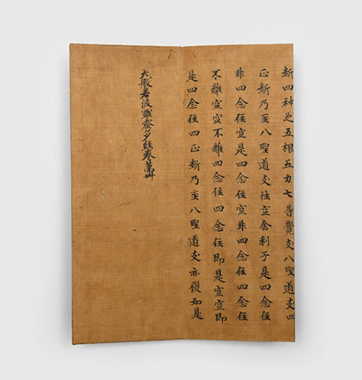 斷四神足五根五力七等覺支八聖道支四
正斷乃至八聖道支性空舍利子是四念住
非四念住空是四念住空非四念住四念住
不離空空不離四念住四念住即是空空即
是四念住四正斷乃至八聖道支亦復如是
大般若波羅蜜多經卷第